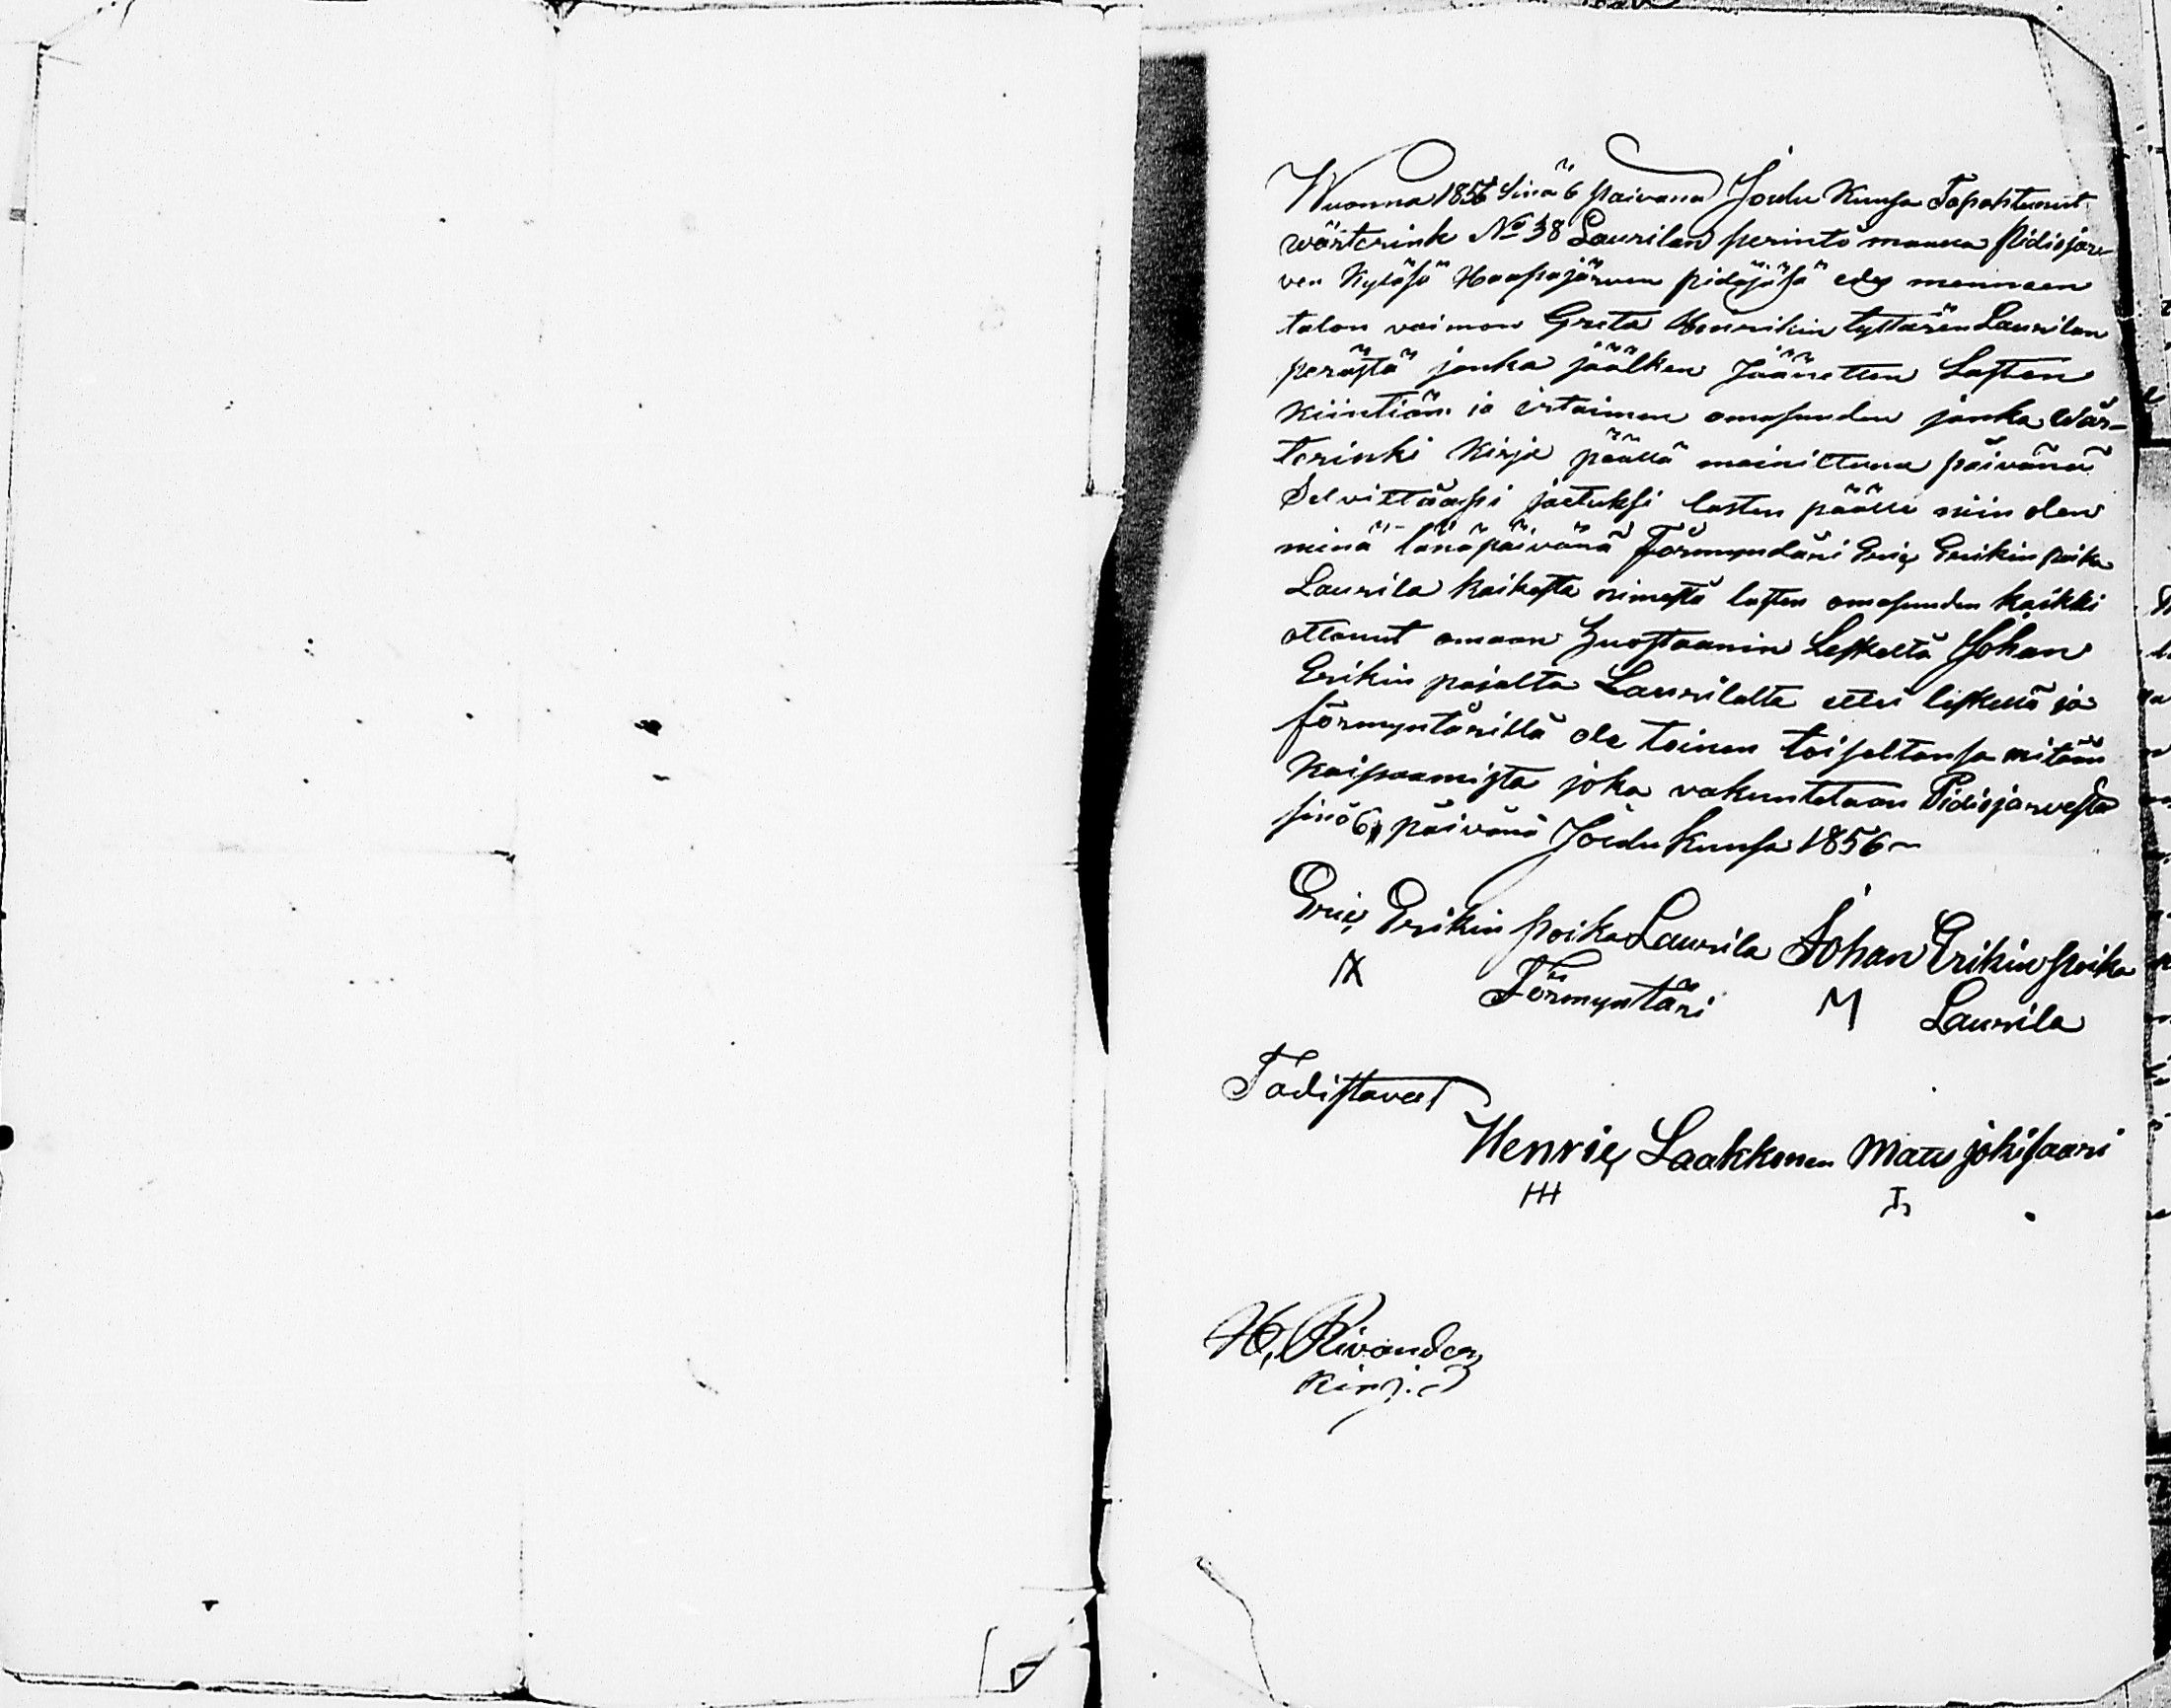 Wuonna 1856 Sinä 6 päivana Joulu Kuusa Tapahtunut
wärterink No 38 Laurilan perintö maassa Pidisjär-
ven Kyläsä Haapajärven pidäjäsä edes mennaen
talon vaimon Greta Henrikin tyttären Laurilan
perästä jonka jäälken Jäänetten Lasten
Kiintiän ja irtaimen omasuuden jonka Wär-
terinki Kirja päällä mainittuna päivänä
Selvittääpi jaetuksi lasten päälle niin olen
minä tänäpäivänä Förmyndäri Eric Erikin poika
Laurila kaikesta nimestä lasten omasuuden kaikki
ottanut omaan huostaanin Leskeltä Johan
Erikin pojalta Laurilalta ettei leskellä ja
förmyntärillä ole toinen toiseltansa mitään
Kaipaamista joka vakuutetaan Pidisjärvestä
sinä 6 päivänä Joulu Kuusa 1856
Eric Erikin poika Laurila Johan Erikin poika
Förmyntäri M Laurila
Todistavat
Henric Laakkonen Mats jokisaari
HH
H. Rivander
Kirj.